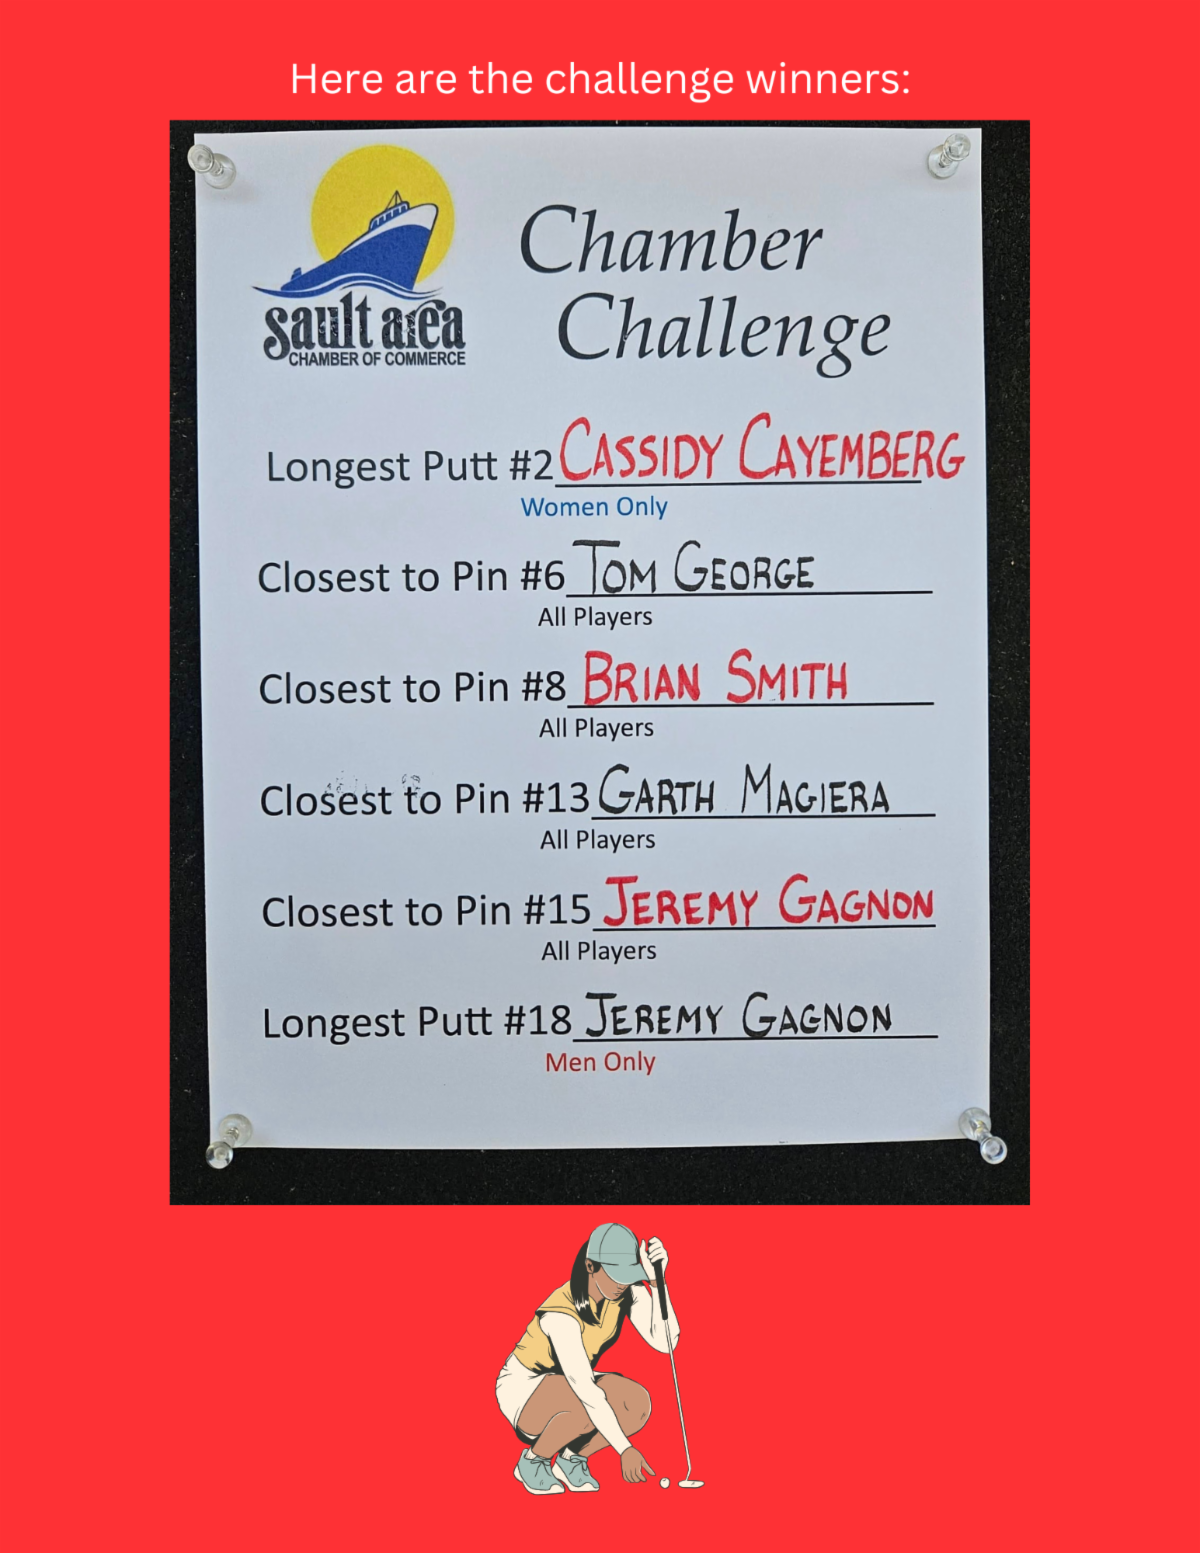 Here are the challenge winners:
sault area
CHAMBER OF COMMERCE
Chamber
Challenge
Longest Putt #2 CASSIDY CAYEMBERG
Women Only
Closest to Pin #6 TOM GEORGE
All Players
Closest to Pin #8 BRIAN SMITH
All Players
Closest to Pin #13 GARTH MAGIERA
All Players
Closest to Pin #15 JEREMY GAGNON
All Players
Longest Putt #18 JEREMY GAGNON
Men Only